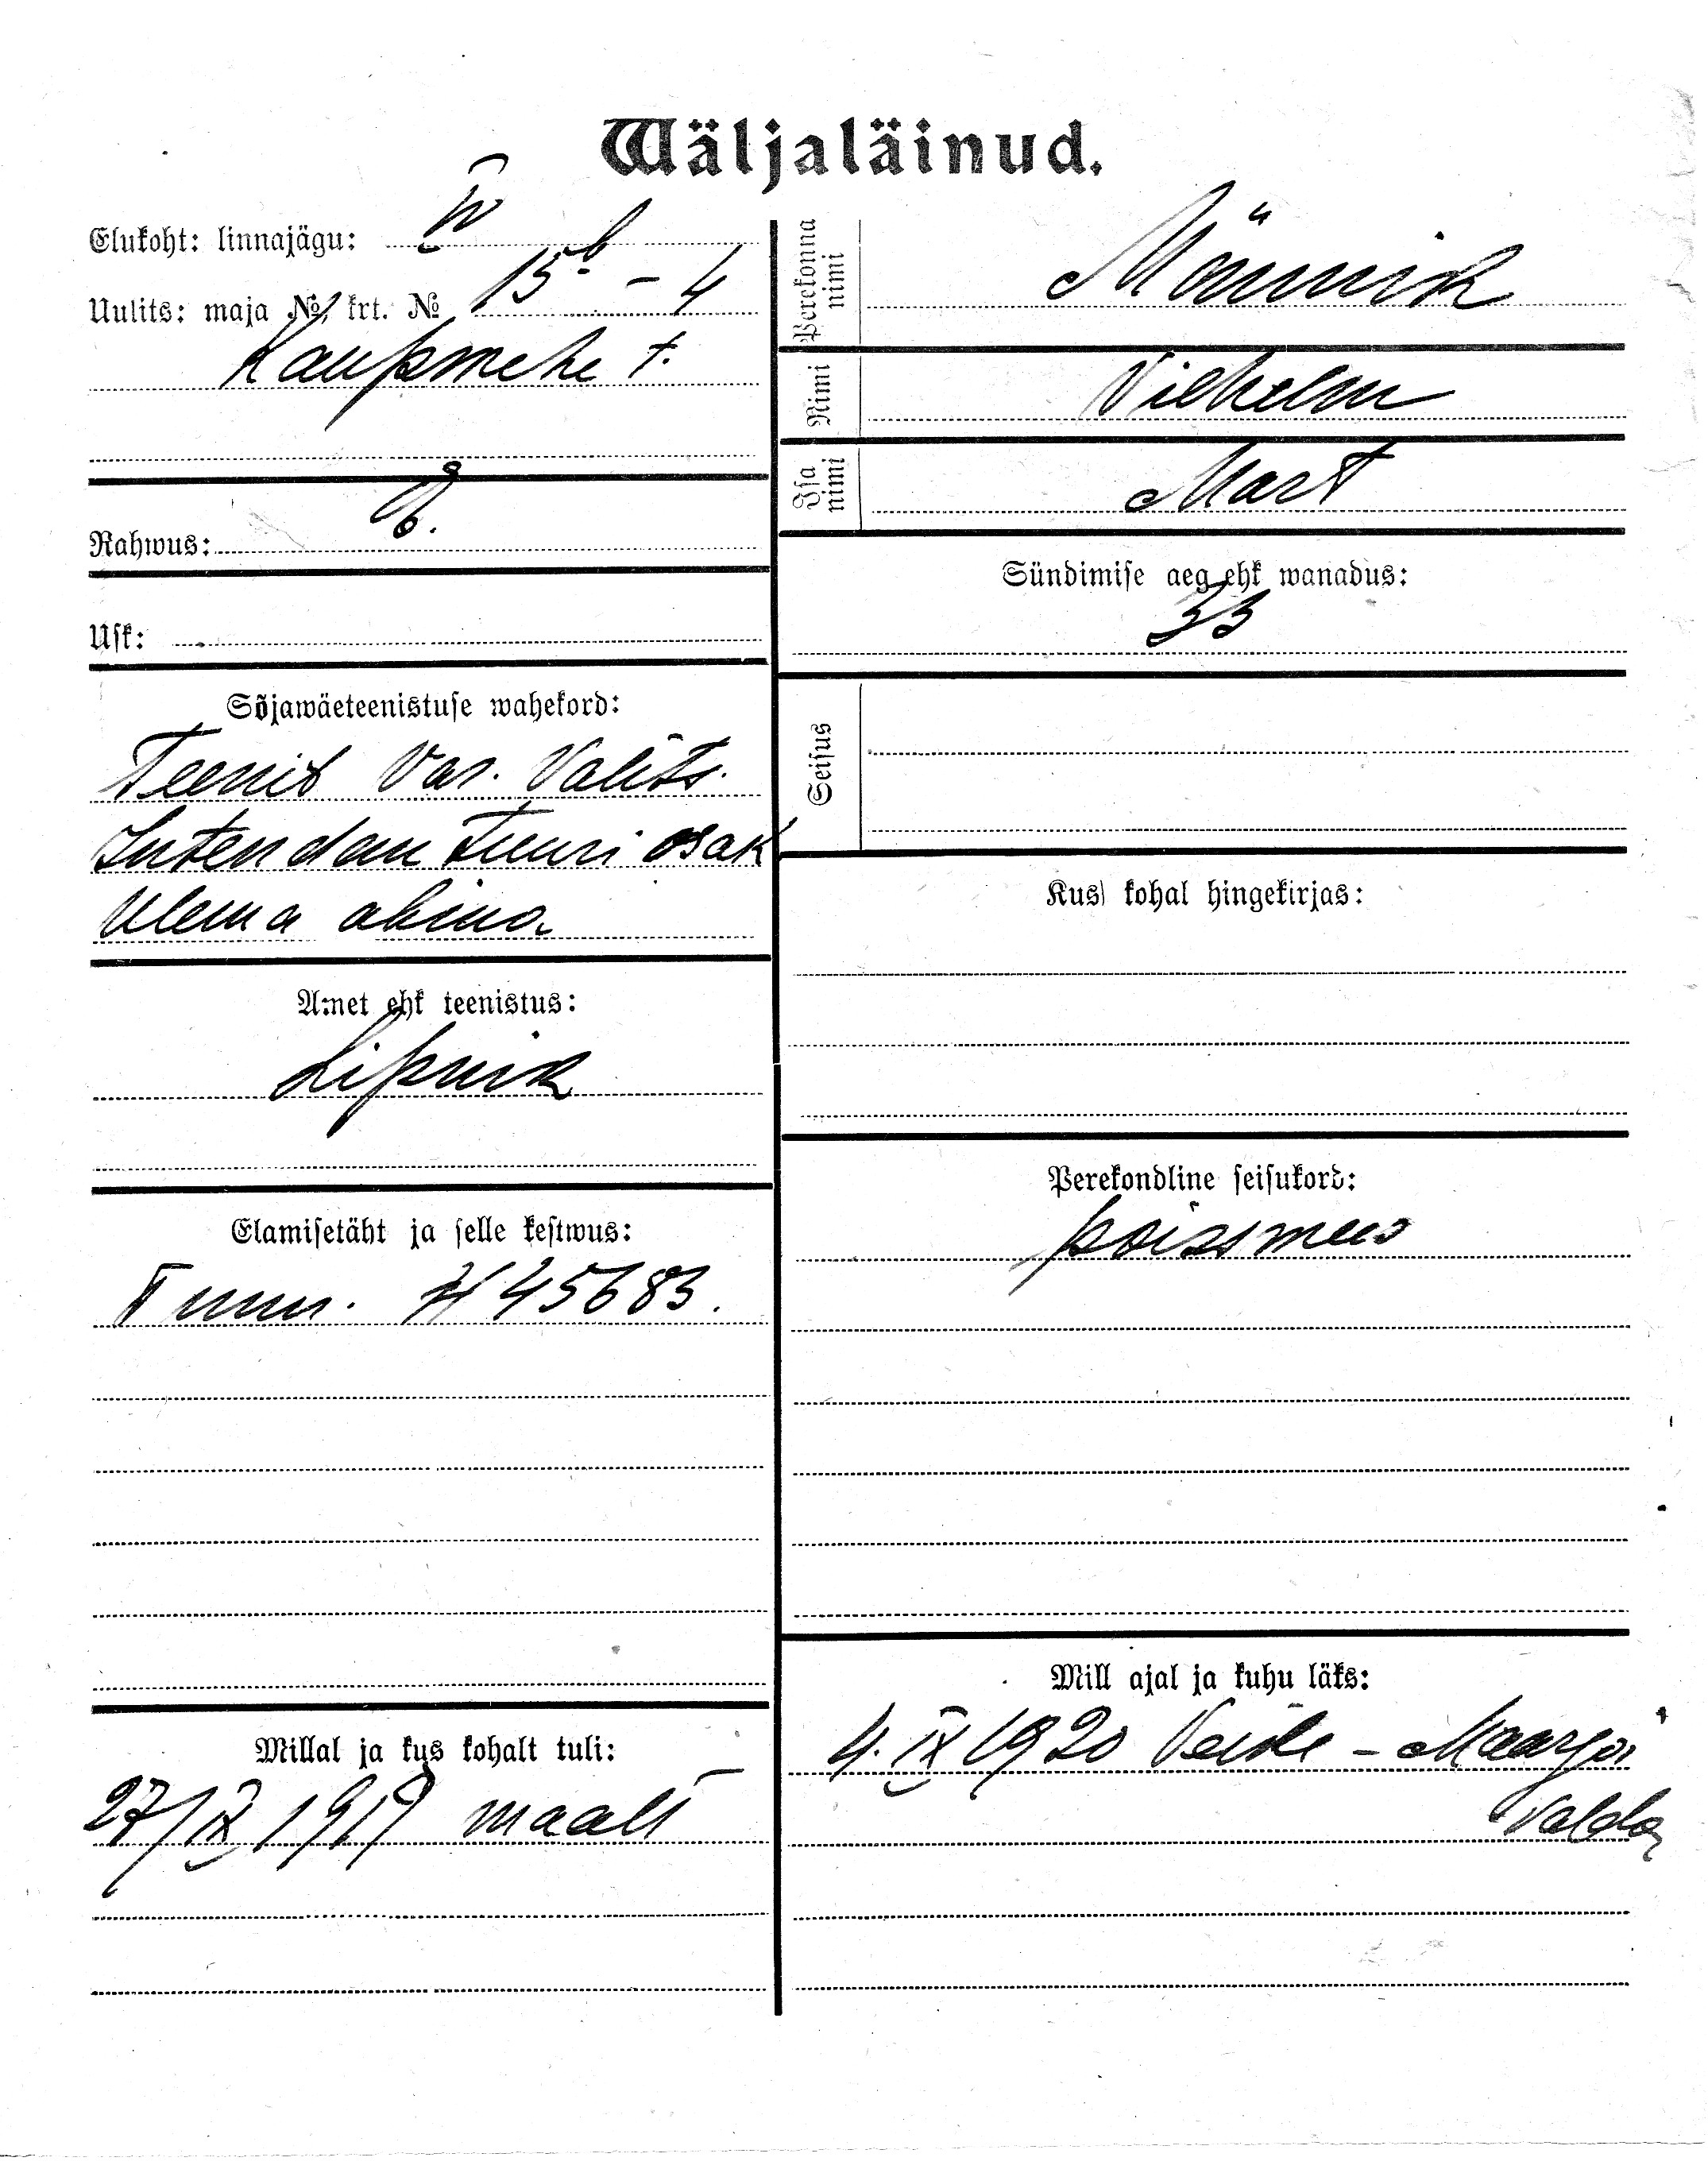 Wäljaläinud.
Elukoht: linnajägu: IV
Uulits: maja №, krt. № 15b - 4
Kaupmehe t.
Rahwus: E.
Usk:
Sõjawäeteenistuse wahekord:
Teenib Var. Valits.
Intendantuuri osak
Ülema abina.
Amet ehk teenistus:
Lipnik
Elamisetäht ja selle kestwus:
Tunn. № 45683.
Millal ja kus kohalt tuli:
27/IX 1919 maalt
Perekonna nimi Männik
Nimi Vilhelm
Isa nimi Mart
Sündimise aeg ehk wanadus:
33
Seisus
Kus kohal hingekirjas:
Perekondline seisukord:
poissmees
Mill ajal ja kuhu läks:
4. IX 1920 Veike-Maarja
valda